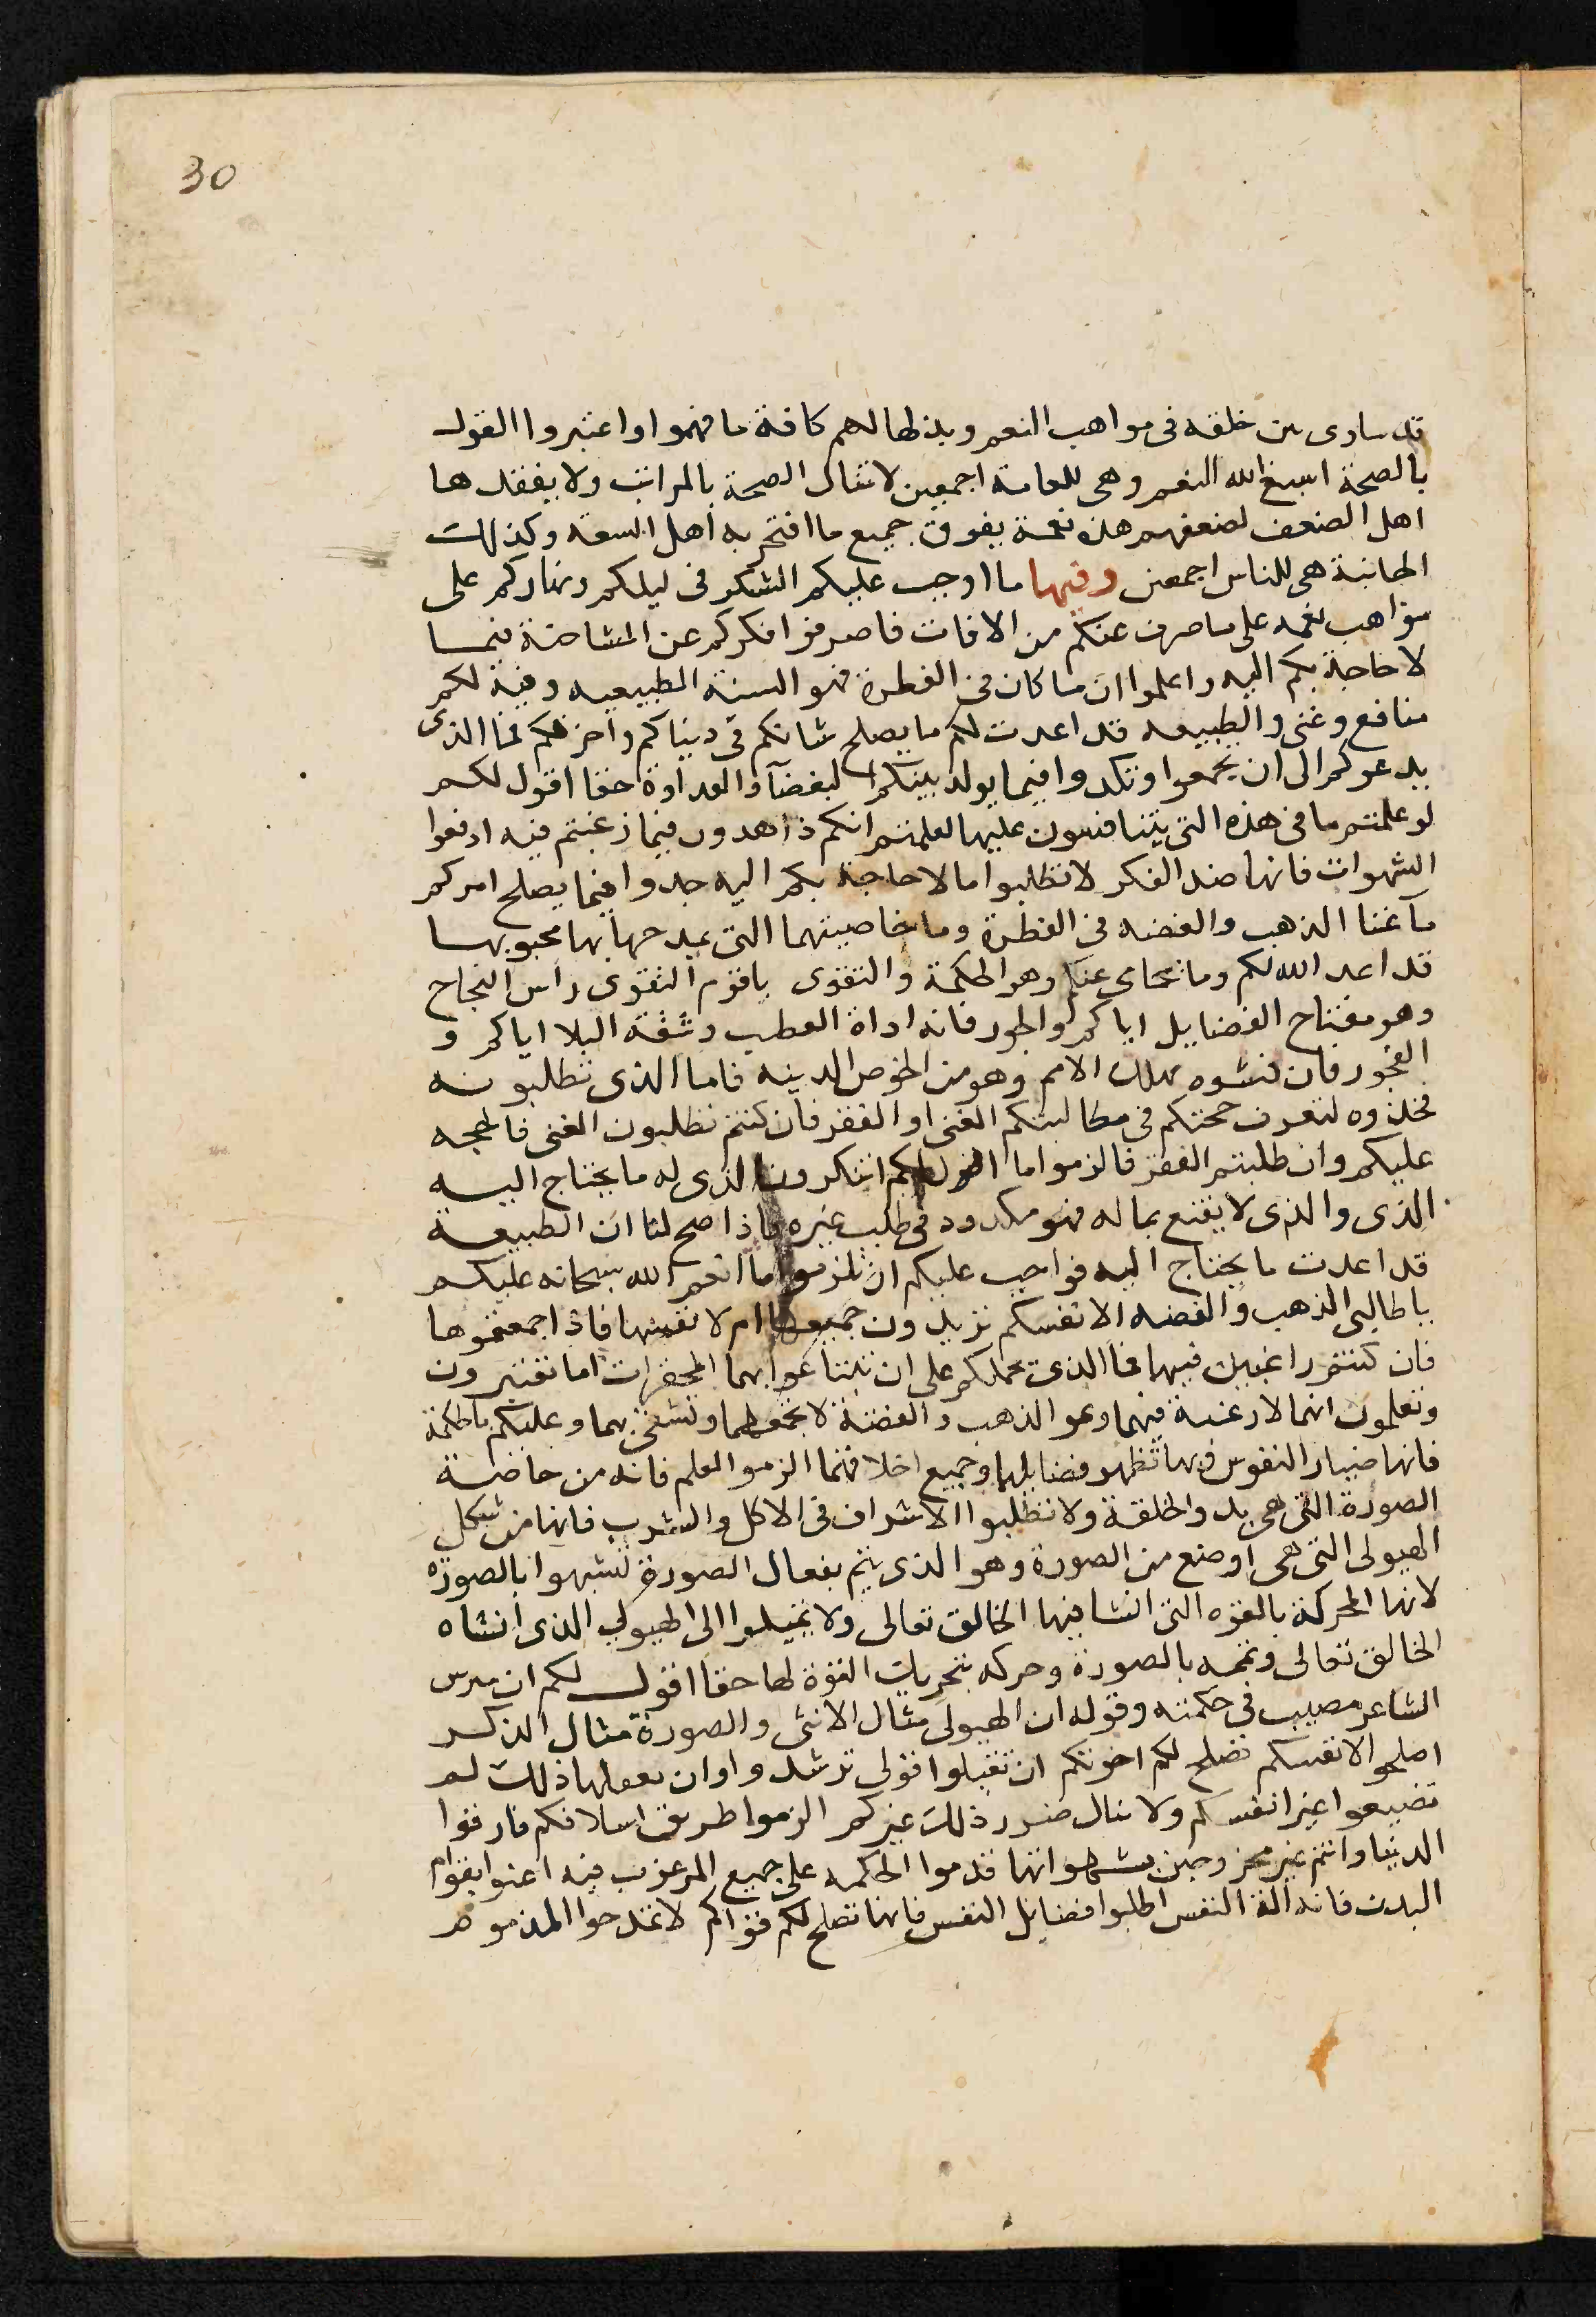 30
قد ساوى بين خلقه فى مواهب النعم وبذلها لهم كافة ما فهموا واعتبروا القول
بالصحة اسبغ الله النعم وهى للعامة اجمعين لا تنال الصحة بالمراتب ولا يفقدها
اهل الضعف لضعفهم هذه نعمة يفوق جميع ما افتخر به اهل السعة وكذلك
هى للناس اجمعين وفيها ما اوجب عليكم الشكر فى ليلكم ونهاركم على
مواهب نعمه على ما صرف عنكم من الافات فاصرفوا فكركم عن المشاحنة فيما
لا حاجة بكم اليه واعلموا ان ما كان فى الفطرة فهو السنة الطبيعيه وفيه لكم
منافع وغنى والطبيعه قد اعدت لكم ما يصلح شانكم فى دنياكم واخرتكم فما الذى
يدعوكم الى ان تجمعوا وتكدوا فيما يولد بينكم البغضآ والعداوة حقا اقول لكم
لو علمتم ما فى هذه التى يتنافسون عليها لعلمتم انكم زاهدون فيما رغبتم فيه ادفعوا
الشهوات فانها ضد الفكر لا تطلبوا ما لا حاجة بكم اليه جدوا فيما يصلح امركم
ما غنا الذهب والفضه فى الفطرة وما خاصيتهما التى يمدحها بها محبوبها
قد اعد الله لكم وما عنكم وهو الحكمة والتقوى ياقوم التقوى راس النجاح
وهو مفتاح الفضايل اياكم والجور فانه اداة العطب وشقة البلا اياكم و
الفجور فان فشوه يهلك الامم وهو من الدينه فاما الذى تطلبونه
فخذوه لتعرف حجتكم فى مطالبتكم الغنى او الفقر فان كنتم تطلبون الغنى فالحجه
عليكم وان طلبتم الفقر فالزموا ما اقول لكم اتنكرون الذى له ما يحتاج اليه
الذى والذى لا يقنع بما له فهو مكدود فى طلب غيره فاذا صح لنا ان الطبيعة
قد اعدت ما يحتاج اليه فواجب عليكم ان تلزموا ما انعم الله سبحانه عليكم
ياطالبى الذهب والفضه الا نفسكم تريدون جميعها ام لا نفسها فاذا جمعتموها
فان كنتم راغبين فيها فما الذى يحملكم على ان تبتاعوا بهما المحقرات اما تعتبرون
وتعلمون انهما لا رغبة فيهما دعوا الذهب والفضة لا تجمعوهما وعليكم بالحكمة
فانها ضياء النفوس فبها تظهر فضايلها وجميع اخلاقها الزموا العلم فانه من خاصة
الصورة التى هى بدو الخلقة ولا تطلبوا الاشراف فى الاكل والشرب فانها من شكل
الهيولى التى هى اوضع من الصورة وهو الذى يتم بفعال الصورة تشبهوا بالصوره
لانها المحركة بالقوه التى انشا فيها الخالق تعالى ولا تميلوا الى الهيولى الذى انشاه
الخالق تعالى وتممه بالصورة وحركه بتحريك القوة لها حقا اقول لكم ان
الشاعر مصيب فى حكمته وقوله ان الهيولى مثال الانثى والصورة مثال الذكر
اصلحوا الانفسكم تصلح لكم اخرتكم ان تقبلوا قولى ترشدوا وان ذلك لم
تضيعوا غير انفسكم ولا ينال ضرر ذلك غيركم الزموا طريق اسلافكم فارقوا
الدنيا وانتم غير بشهواتها قدموا الحكمه على جميع المرغوب فيه اعنوا بقوام
البدن فانه الة النفس اطلبوا فضايل النفس فانها تصلح لكم قواكم لا تمدحوا المذموم